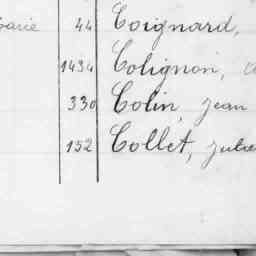 44 Coignard,
1434 Colignon,
330 Colin, Jean
152 Collet, Julie